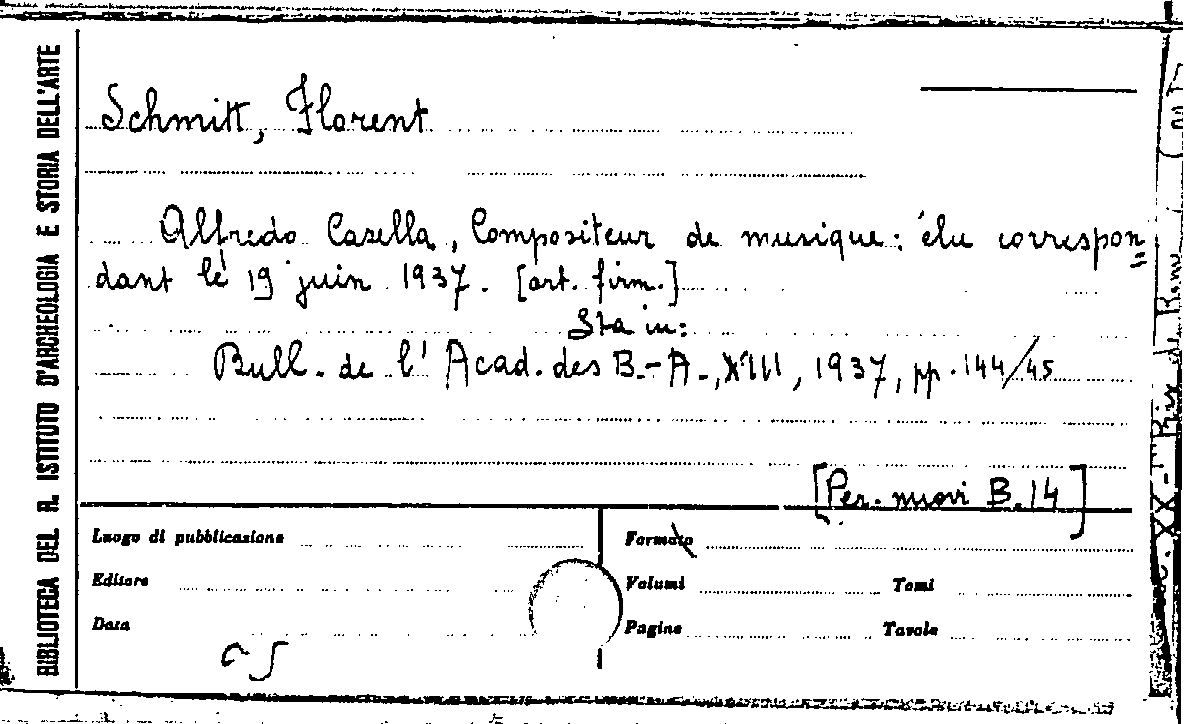 BIBLIOTECA DEL R. ISTITUTO D'ARCHEOLOGIA E STORIA DELL'ARTE
Schmitt, Florent
Alfredo Casella, Compositeur de musique: élu correspon=
dant le 19 juin 1937. [art. firm.]
Sta in:
Bull. de l'Acad. des B.-A., XIII, 1937, pp. 144/45
[Per. nuovi B.14]
Luogo di pubblicazione
Formato
Editore
Volumi Tomi
Data
Pagine Tavole